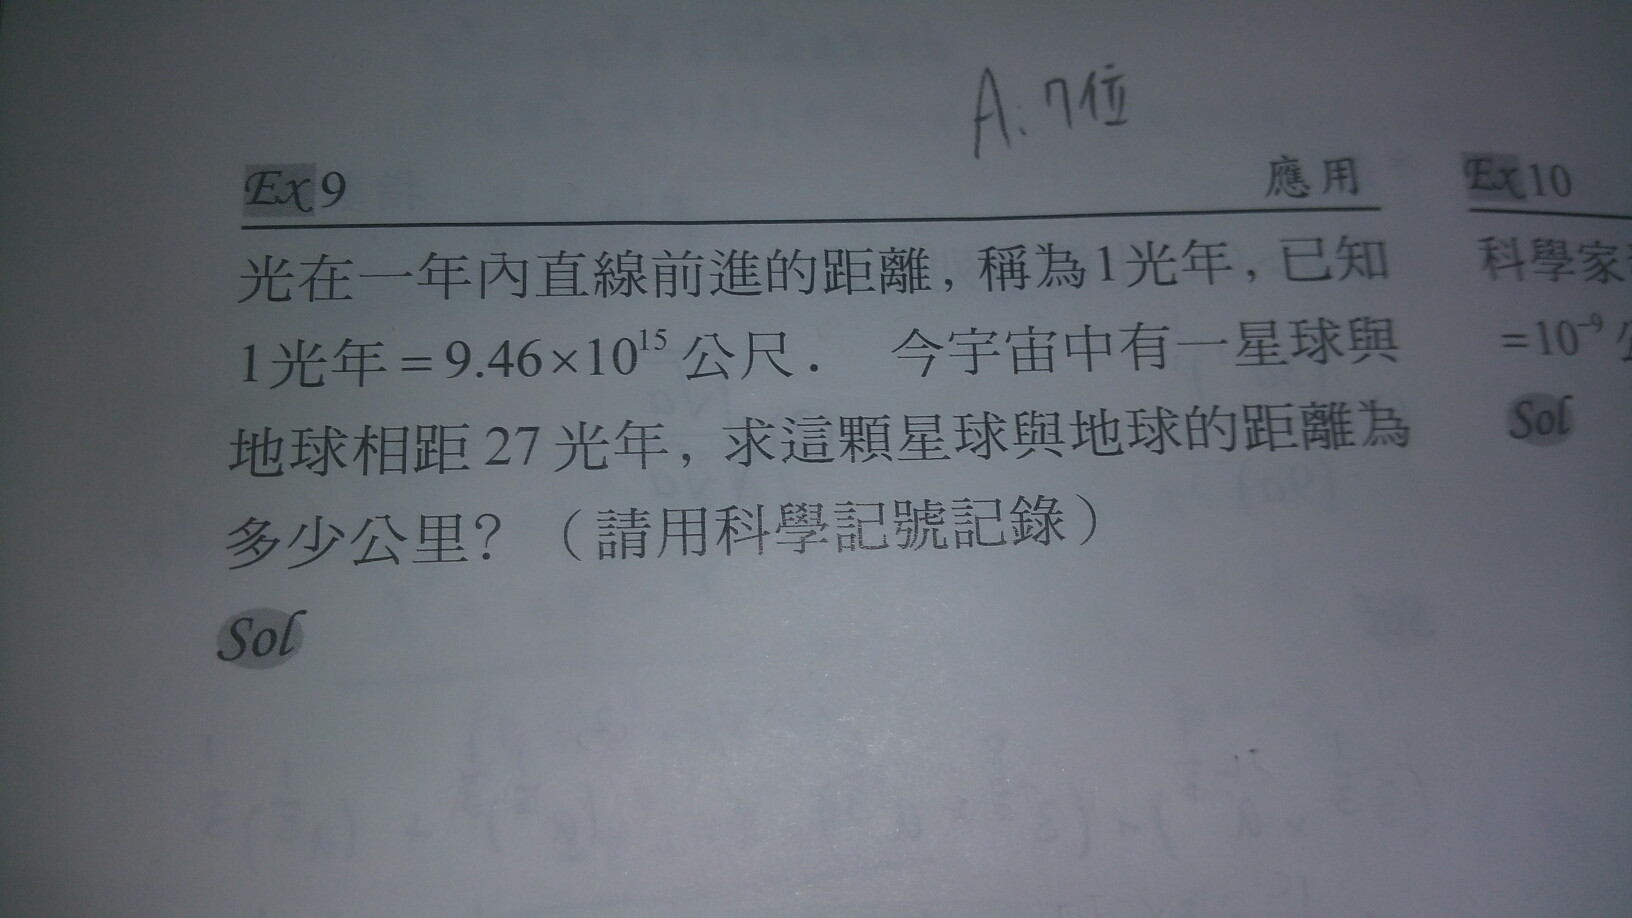 A:7位
Ex9 應用
光在一年內直線前進的距離,稱為1光年,已知
1光年=9.46×10¹⁵公尺. 今宇宙中有一星球與
地球相距27光年,求這顆星球與地球的距離為
多少公里?(請用科學記號記錄)
Sol
Ex10
科學家
=10⁻⁹
Sol